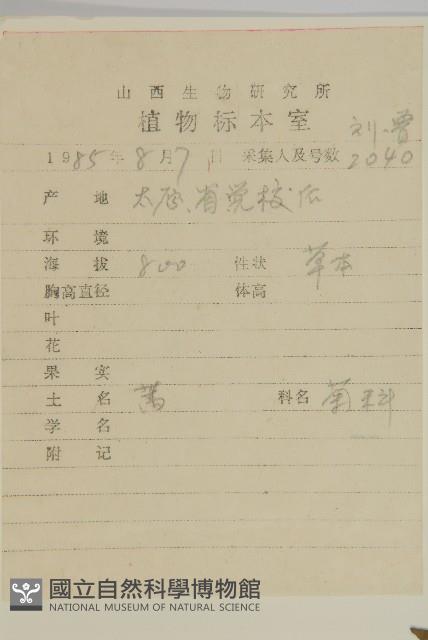 山西生物研究所
植物标本室
刘、曾
1985年8月7日 采集人及号数 2040
产地 太原、省党校后
环境
海拔 800 性状 草本
胸高直径 体高
叶
花
果实
土名 蒿 科名 菊科
学名
附记
國立自然科學博物館
NATIONAL MUSEUM OF NATURAL SCIENCE